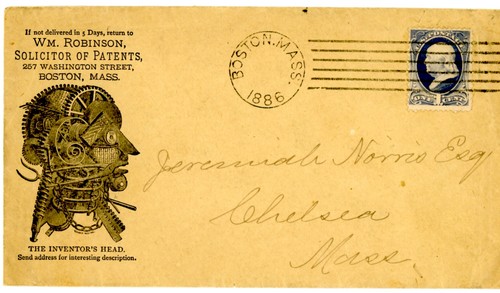 If not delivered in 5 Days, return to
WM. ROBINSON,
SOLICITOR OF PATENTS,
257 WASHINGTON STREET,
BOSTON, MASS.
BOSTON. MASS.
1886
U.S. POSTAGE
Jeremiah Norris Esq
Chelsea
Mass.
THE INVENTOR'S HEAD.
Send address for interesting description.